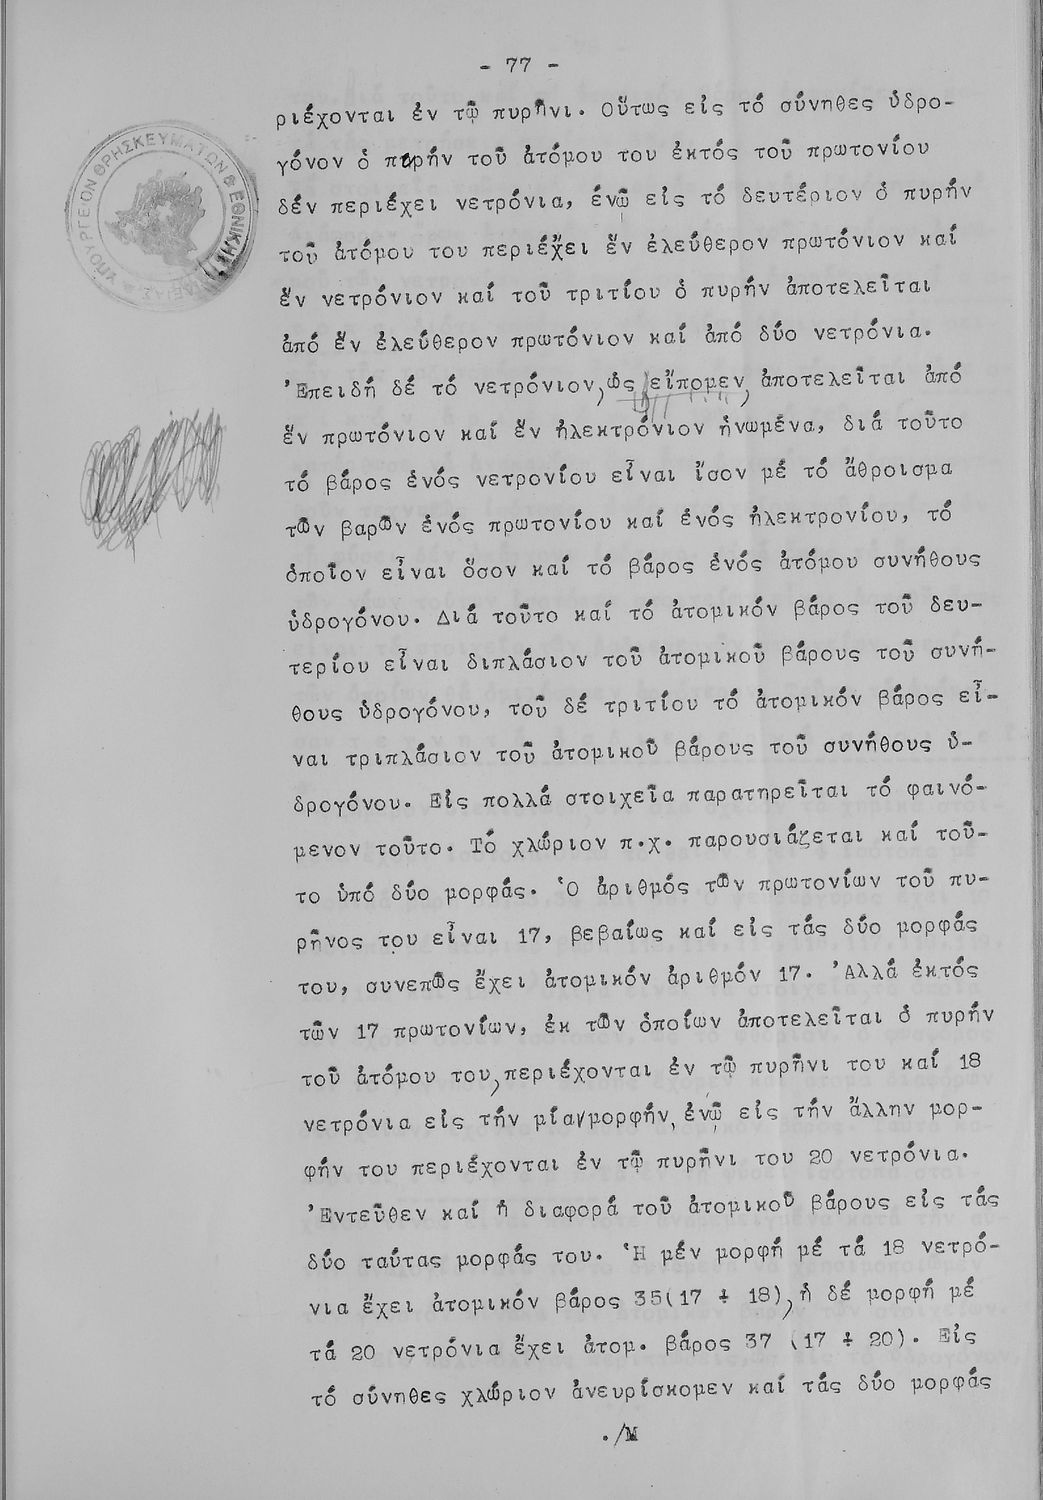 - 77 -
ριέχονται ἐν τῷ πυρῆνι. Οὕτως εἰς τό σύνηθες ὑδρο-
γόνον ὁ πυρήν τοῦ ἀτόμου του ἐκτός τοῦ πρωτονίου
δέν περιέχει νετρόνια, ἐνῷ εἰς τό δευτέριον ὁ πυρήν
τοῦ ἀτόμου του περιέχει ἕν ἐλεύθερον πρωτόνιον καί
ἕν νετρόνιον καί τοῦ τριτίου ὁ πυρήν ἀποτελεῖται
ἀπό ἕν ἐλεύθερον πρωτόνιον καί ἀπό δύο νετρόνια.
Ἐπειδή δέ τό νετρόνιον, ὡς εἴπομεν, ἀποτελεῖται ἀπό
ἕν πρωτόνιον καί ἕν ἠλεκτρόνιον ἡνωμένα, διά τοῦτο
τό βάρος ἑνός νετρονίου εἶναι ἴσον μέ τό ἄθροισμα
τῶν βαρῶν ἑνός πρωτονίου καί ἑνός ἠλεκτρονίου, τό
ὁποῖον εἶναι ὅσον καί τό βάρος ἑνός ἀτόμου συνήθους
ὑδρογόνου. Διά τοῦτο καί τό ἀτομικόν βάρος τοῦ δευ-
τερίου εἶναι διπλάσιον τοῦ ἀτομικοῦ βάρους τοῦ συνή-
θους ὑδρογόνου, τοῦ δέ τριτίου τό ἀτομικόν βάρος εἶ-
ναι τριπλάσιον τοῦ ἀτομικοῦ βάρους τοῦ συνήθους ὑ-
δρογόνου. Εἰς πολλά στοιχεῖα παρατηρεῖται τό φαινό-
μενον τοῦτο. Τό χλώριον π.χ. παρουσιάζεται καί τοῦ-
το ὑπό δύο μορφάς. Ὁ ἀριθμός τῶν πρωτονίων τοῦ πυ-
ρῆνος του εἶναι 17, βεβαίως καί εἰς τάς δύο μορφάς
του, συνεπῶς ἔχει ἀτομικόν ἀριθμόν 17. Ἀλλά ἐκτός
τῶν 17 πρωτονίων, ἐκ τῶν ὁποίων ἀποτελεῖται ὁ πυρήν
τοῦ ἀτόμου του, περιέχονται ἐν τῷ πυρῆνι του καί 18
νετρόνια εἰς τήν μίαν μορφήν, ἐνῷ εἰς τήν ἄλλην μορ-
φήν του περιέχονται ἐν τῷ πυρῆνι του 20 νετρόνια.
Ἐντεῦθεν καί ἡ διαφορά τοῦ ἀτομικοῦ βάρους εἰς τάς
δύο ταύτας μορφάς του. Ἡ μέν μορφή μέ τά 18 νετρό-
νια ἔχει ἀτομικόν βάρος 35(17 + 18), ἡ δέ μορφή μέ
τά 20 νετρόνια ἔχει ἀτομ. βάρος 37 (17 + 20). Εἰς
τό σύνηθες χλώριον ἀνευρίσκομεν καί τάς δύο μορφάς
./Μ
ΥΠΟΥΡΓΕΙΟΝ ΘΡΗΣΚΕΥΜΑΤΩΝ & ΕΘΝΙΚΗΣ